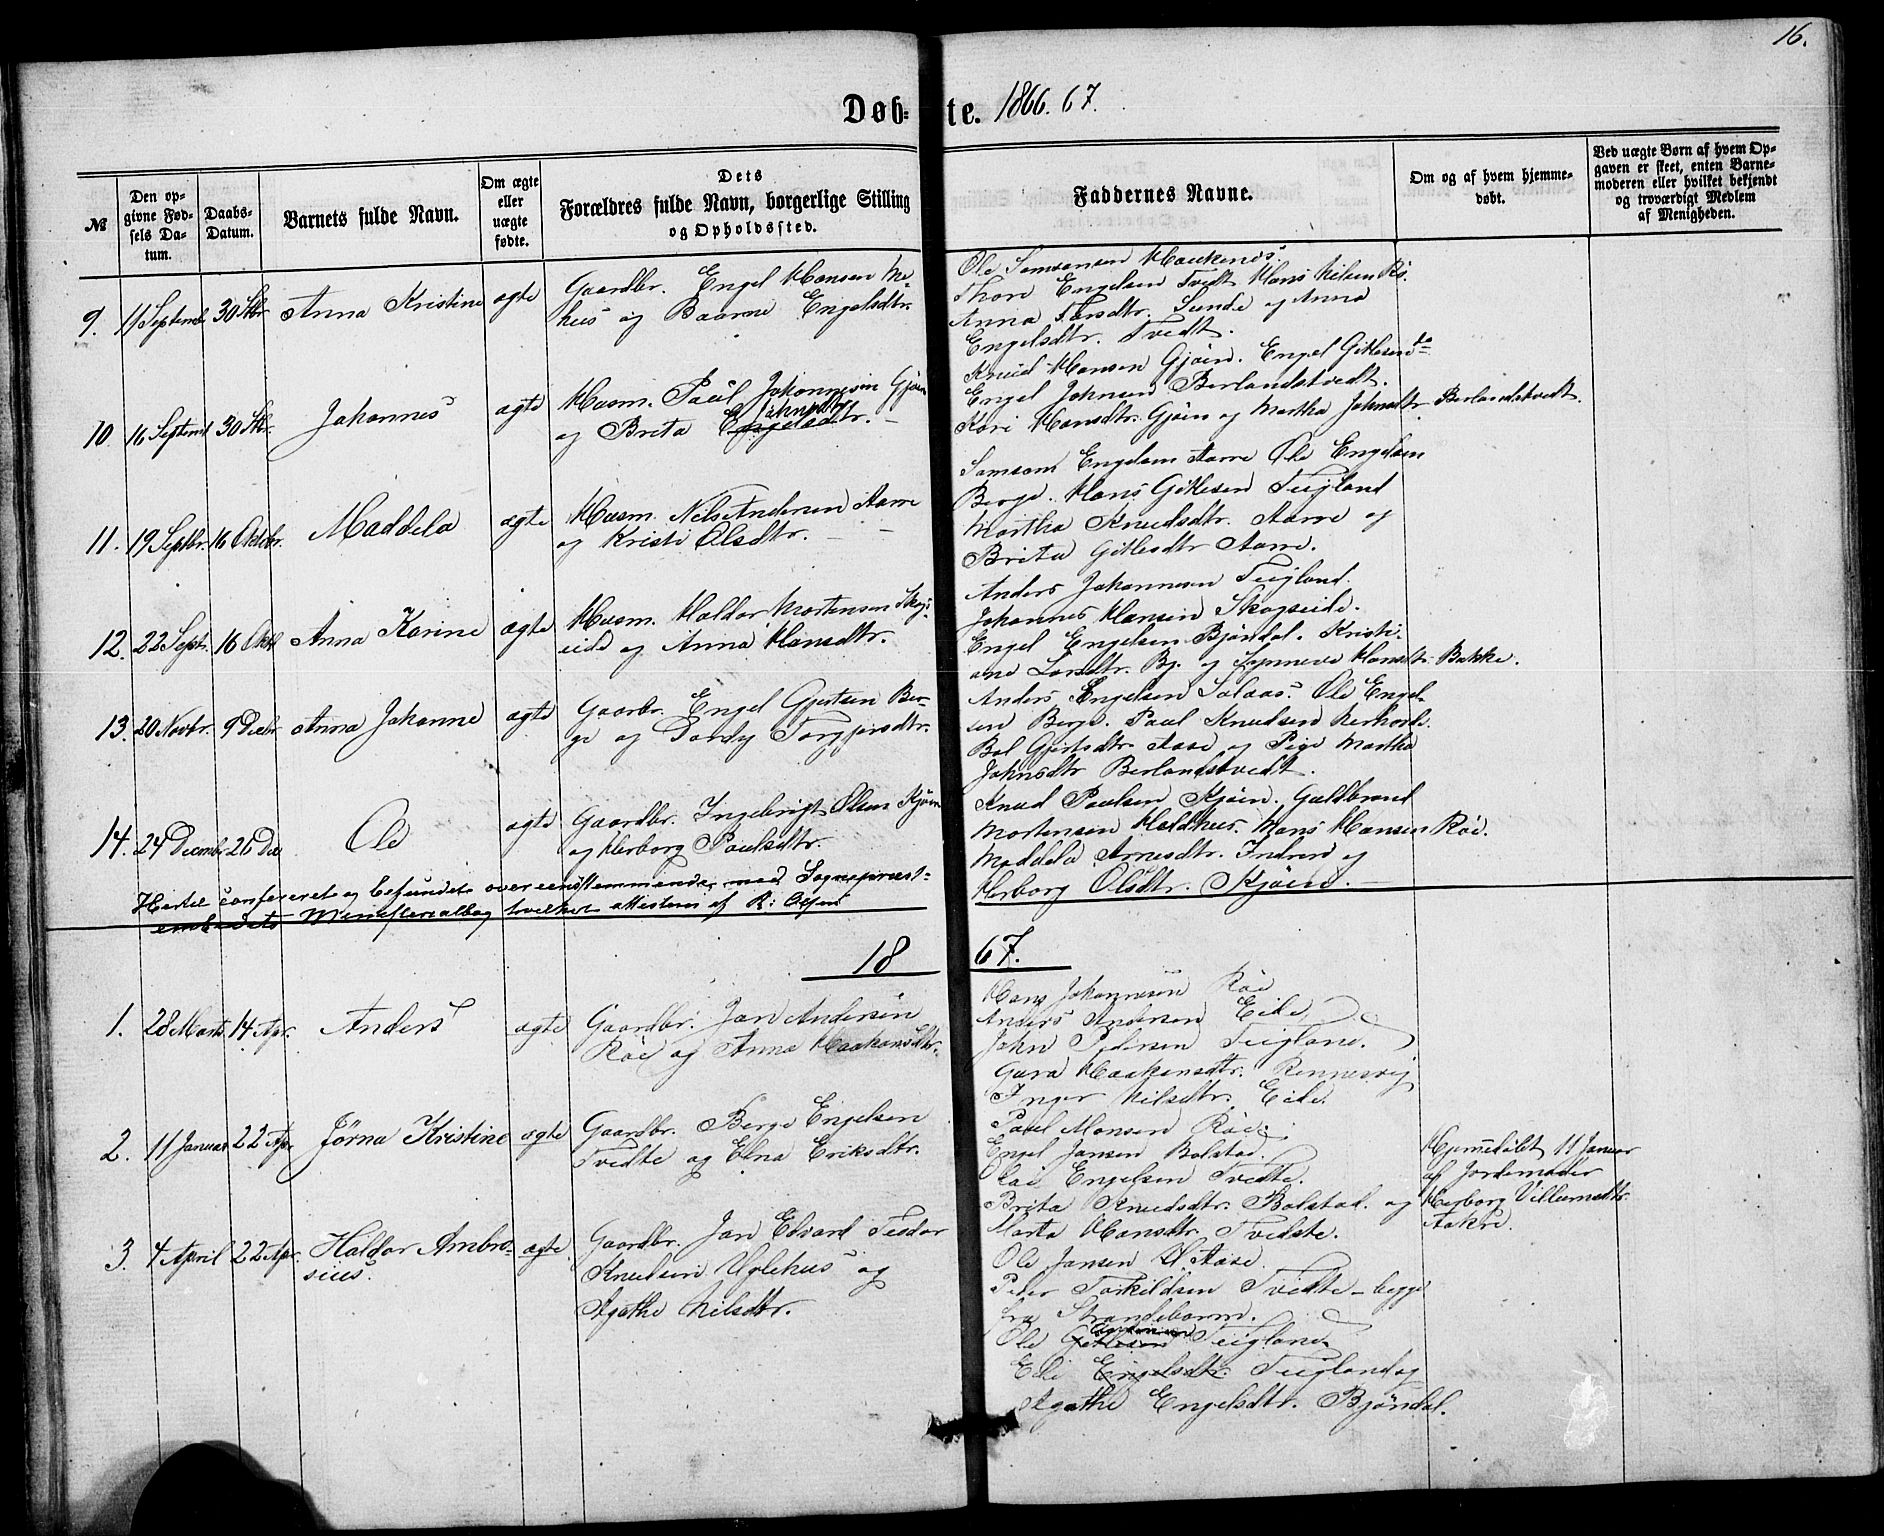 16.
Døb-te. 1866. 67.
№
Den op-
givne Fød-
sels Da-
tum.
Daabs-
Datum.
Barnets fulde Navn.
Om ægte
eller
uægte
fødte.
Dets
Forældres fulde Navn, borgerlige Stilling
og Opholdssted.
Faddernes Navne.
Om og af hvem hjemme-
døbt.
Ved uægte Børn af hvem Op-
gaven er skeet, enten Barne-
moderen eller hvilket bekjendt
og troværdigt Medlem
af Menigheden.
9. 11 Septemb 30 Stbr Anna Kristine ægte
Gaardbr. Engel Hansen Me-
hus og Baarne Engelsdtr.
Ole Samsonsen Haukenes.
Thore Engelsen Tvedt Hans Nilsen Rö.
Anna Larsdtr. Sunde og Anna
Engelsdtr. Tvedt.
10. 16 Septemb 30 Stb. Johannes ægte
Husm. Paul Johannesen Gjöen
og Brita Engelsdtr. Johnsdtr
Knud Hansen Gjöen. Engel Gitlesen do
Engel Johnsen Berlandstvedt.
Kari Hansdtr. Gjöen og Martha Johnsdtr. Berlandstvedt.
11. 19 Septbr. 16 Oktbr. Maddela ægte
Husm. Nils Andersen Aarre
og Kristi Olsdtr.
Samson Engelsen Aarre Ole Engelsen
Berge. Hans Gitlesen Teigland
Martha Knudsdtr. Aarre og
Brita Gitlesdtr Aarre.
12. 22 Sept. 16 Okt Anna Karine ægte
Husm. Haldor Mortensen Skogs-
eide og Anna Hansdtr.
Anders Johannesen Teigland.
Johannes Hansen Skogseide.
Engel Engelsen Bjöndal. Kristi-
ane Larsdtr. Bj. og Synneva Hansdtr. Bakke.
13. 20 Novbr. 9 Decbr. Anna Johanne ægte
Gaarbr. Engel Gjertsen Ber-
ge og Dordy Torgjersdtr.
Anders Engelsen Solaas. Ole Engel-
sen Berge. Paul Knudsen Nerhovde.
Bol Gjertsdtr. Aase og Pige Martha
Johnsdtr Berlandstvedt.
14. 24 Decembr 26 Dec Ole ægte
Gaardbr. Ingebrigt Olsen Kjöen
og Herborg Paulsdtr.
Knud Paulsen Kjöen. Guldbrand
Mortensen Haldhus. Mons Hansen Röe.
Maddela Arnesdtr. Indrev og
Herborg Olsdtr. Kjöen.
Hertil confereret og befundet overeensstemmende, med Sognepræst-
embedets Ministerialbog hvilket attesteres af R: Olsen
18 67.
1. 28 Marts 14 Apr. Anders ægte
Gaardbr. Jan Andersen
Röe og Anna Haakonsdtr.
Hans Johannesen Röe
Anders Andersen Eide,
John Pedersen Teigland.
Guro Haakensdtr. Rennesvig
Inger Nilsdtr. Eide.
2. 11 Januar 22 Apr Jørna Kristine ægte
Gaardbr. Berge Engelsen
Tvedte og Elna Eriksdtr.
Paul Monsen Röe.
Engel Jansen Bolstad.
Engelsen Tvedte.
Brita Knudsdtr. Bolstad. og
Marta Hansdtr. Tvedste.
Hjemedöbt 11 Januar
af Jordemoder
Herborg Villumsdtr.
Aakre.
3. 4 April 22 Apr. Haldor Ambro-
sius. ægte.
Gaardbr. Jan Edvard Teodor
Knudsen Uglehus og
Agathe Nilsdtr.
Ole Jansen H. Aase.
Peter Torkildsen Tvedte - begge
fra Strandebarm.
Ole Gitlesen Teigland
Eli Engelsdtr. Teigland og
Agathe Engelsdtr. Bjöndal.